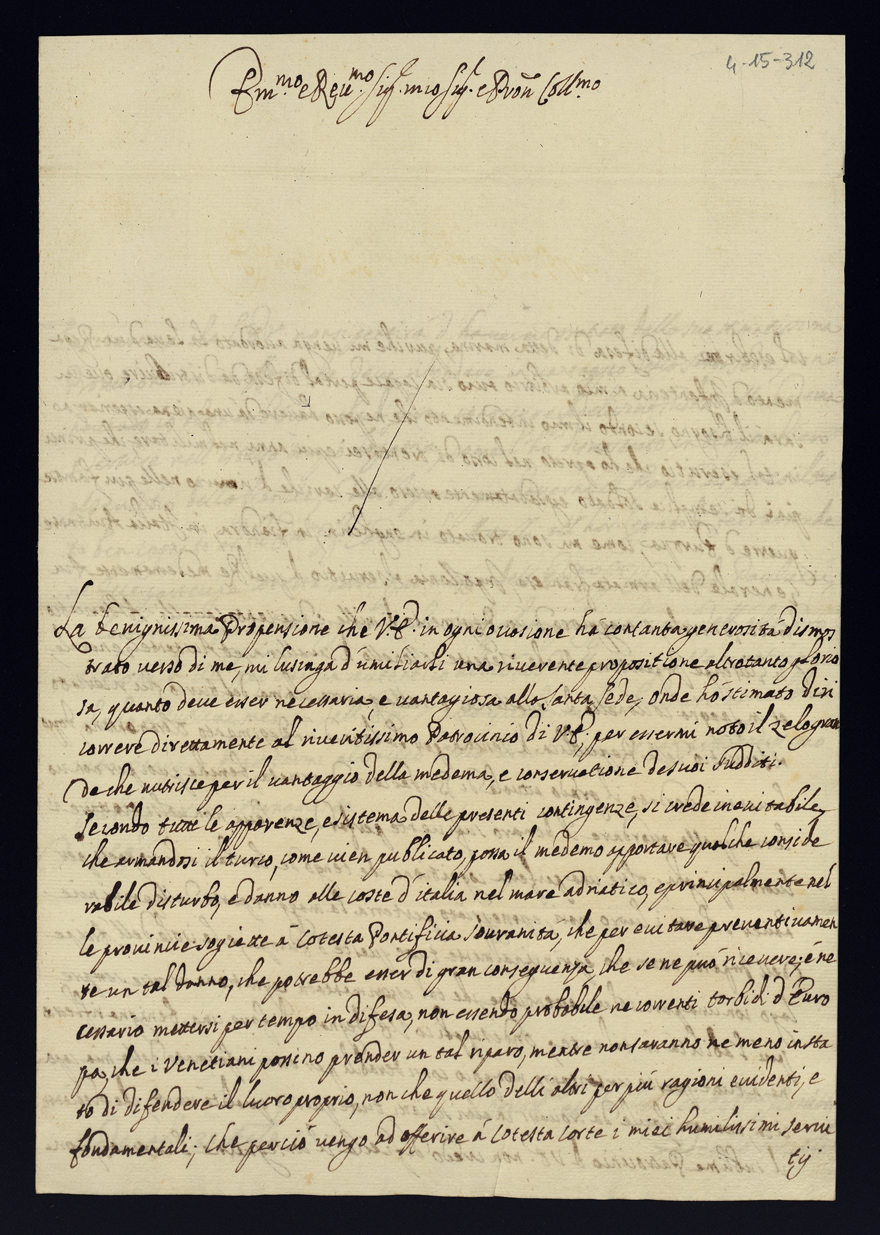 4-15-312
Em.mo e Reu.mo Sig.r mio Sig.r e Pron Coll.mo
La benignissima Propensione che V.E. in ogni ocasione há con tanta generositá dismos
trato verso di me, mi lusinga d'umiliarli una riverente propositione altrotanto glorio
sa, quanto deve esser necessaria, e vantagiosa alla Santa Sede, onde hó stimato di ri
correre direttamente al riveritissimo Patrocinio di V.E. per essermi noto il zelo gran
de che nutrisce per il vantaggio della medema, e conservatione de suoi sudditi.
Secondo tutte le apparenze, e sistema delle presenti contingenze, si crede inevitabile,
che armandosi il turco, come vien publicato, possa il medemo apportare qualche conside
rabile disturbo, e danno alle coste d'italia nel mare adriatico, e principalmente nel
le provincie sogiette á Cotesta Pontificia Souranitá, che per evitare preventivamen
te un tal danno, che potrebbe esser di gran conseguenza, che se ne puó ricevere; é ne
cessario mettersi per tempo in difesa, non essendo probabile ne correnti torbidi d'Euro
pa, che i Venetiani possino prender un tal riparo, mentre non saranno ne meno in sta
to di difendere il loro proprio, non che quello delli altri per piú ragioni evidenti, e
fondamentali; che perció vengo ad offerire á Cotesta Corte i miei humilissimi servi
tij